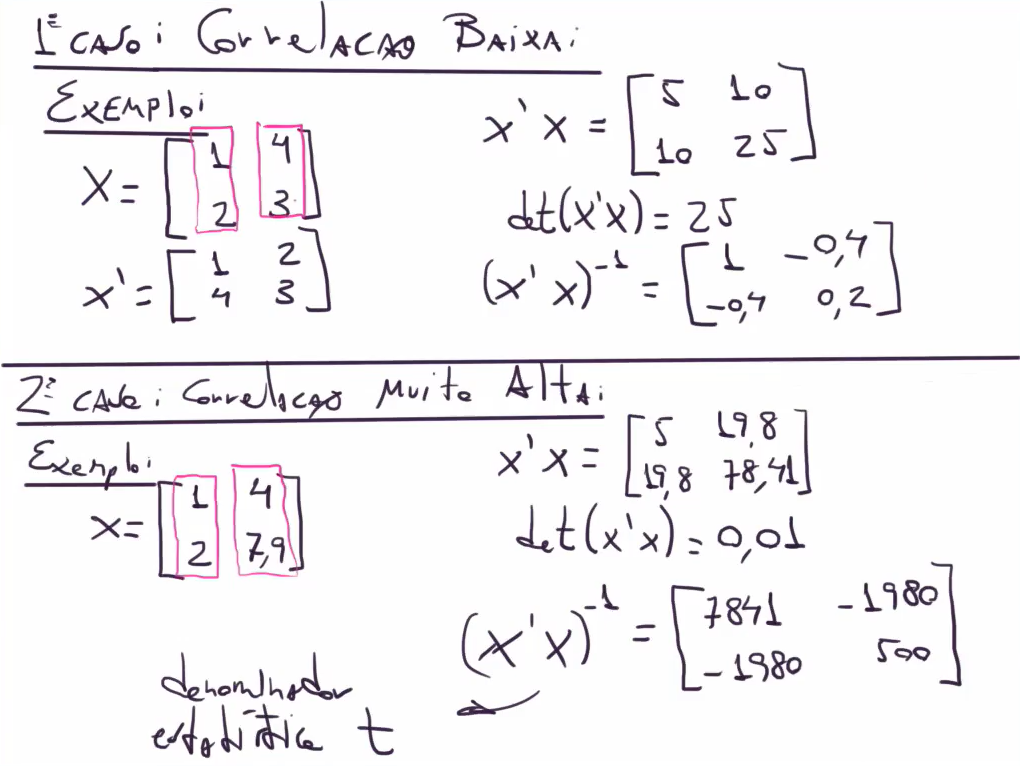 1º CASO: CORRELACAO BAIXA:
EXEMPLO:
X = [1 4
2 3]
X' = [1 2
4 3]
X'X = [5 10
10 25]
det(X'X) = 25
(X'X)⁻¹ = [1 -0,4
-0,4 0,2]
2º CASO: CORRELACAO MUITO ALTA:
Exemplo:
X = [1 4
2 7,9]
X'X = [5 19,8
19,8 78,41]
det(X'X) = 0,01
(X'X)⁻¹ = [7841 -1980
-1980 500]
denominador
estatística t